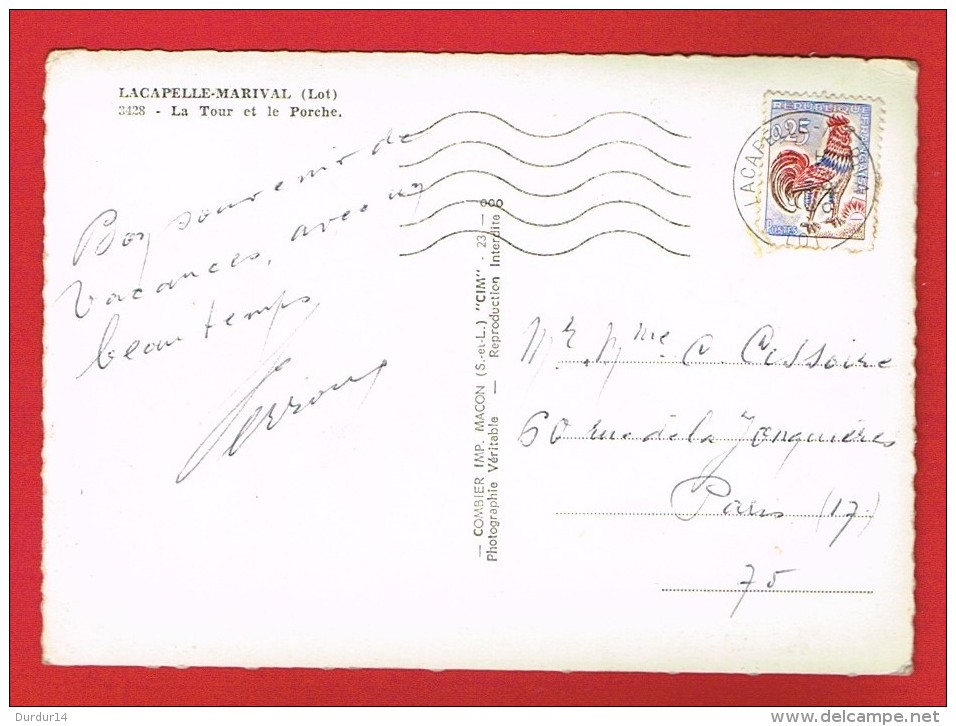 LACAPELLE-MARIVAL (Lot)
3428 - La Tour et le Porche.
Bon souvenir de
vacances, avec un
beau temps
RÉPUBLIQUE FRANÇAISE
0,25
POSTES
LACAP
LOT
— COMBIER IMP. MACON (S.-et-L.) "CIM" - 23 —
Photographie Véritable — Reproduction Interdite
Mr Mme C. Cissoire
60 rue de la Jonquières
Paris (17)
75
Durdur14
www.delcampe.net